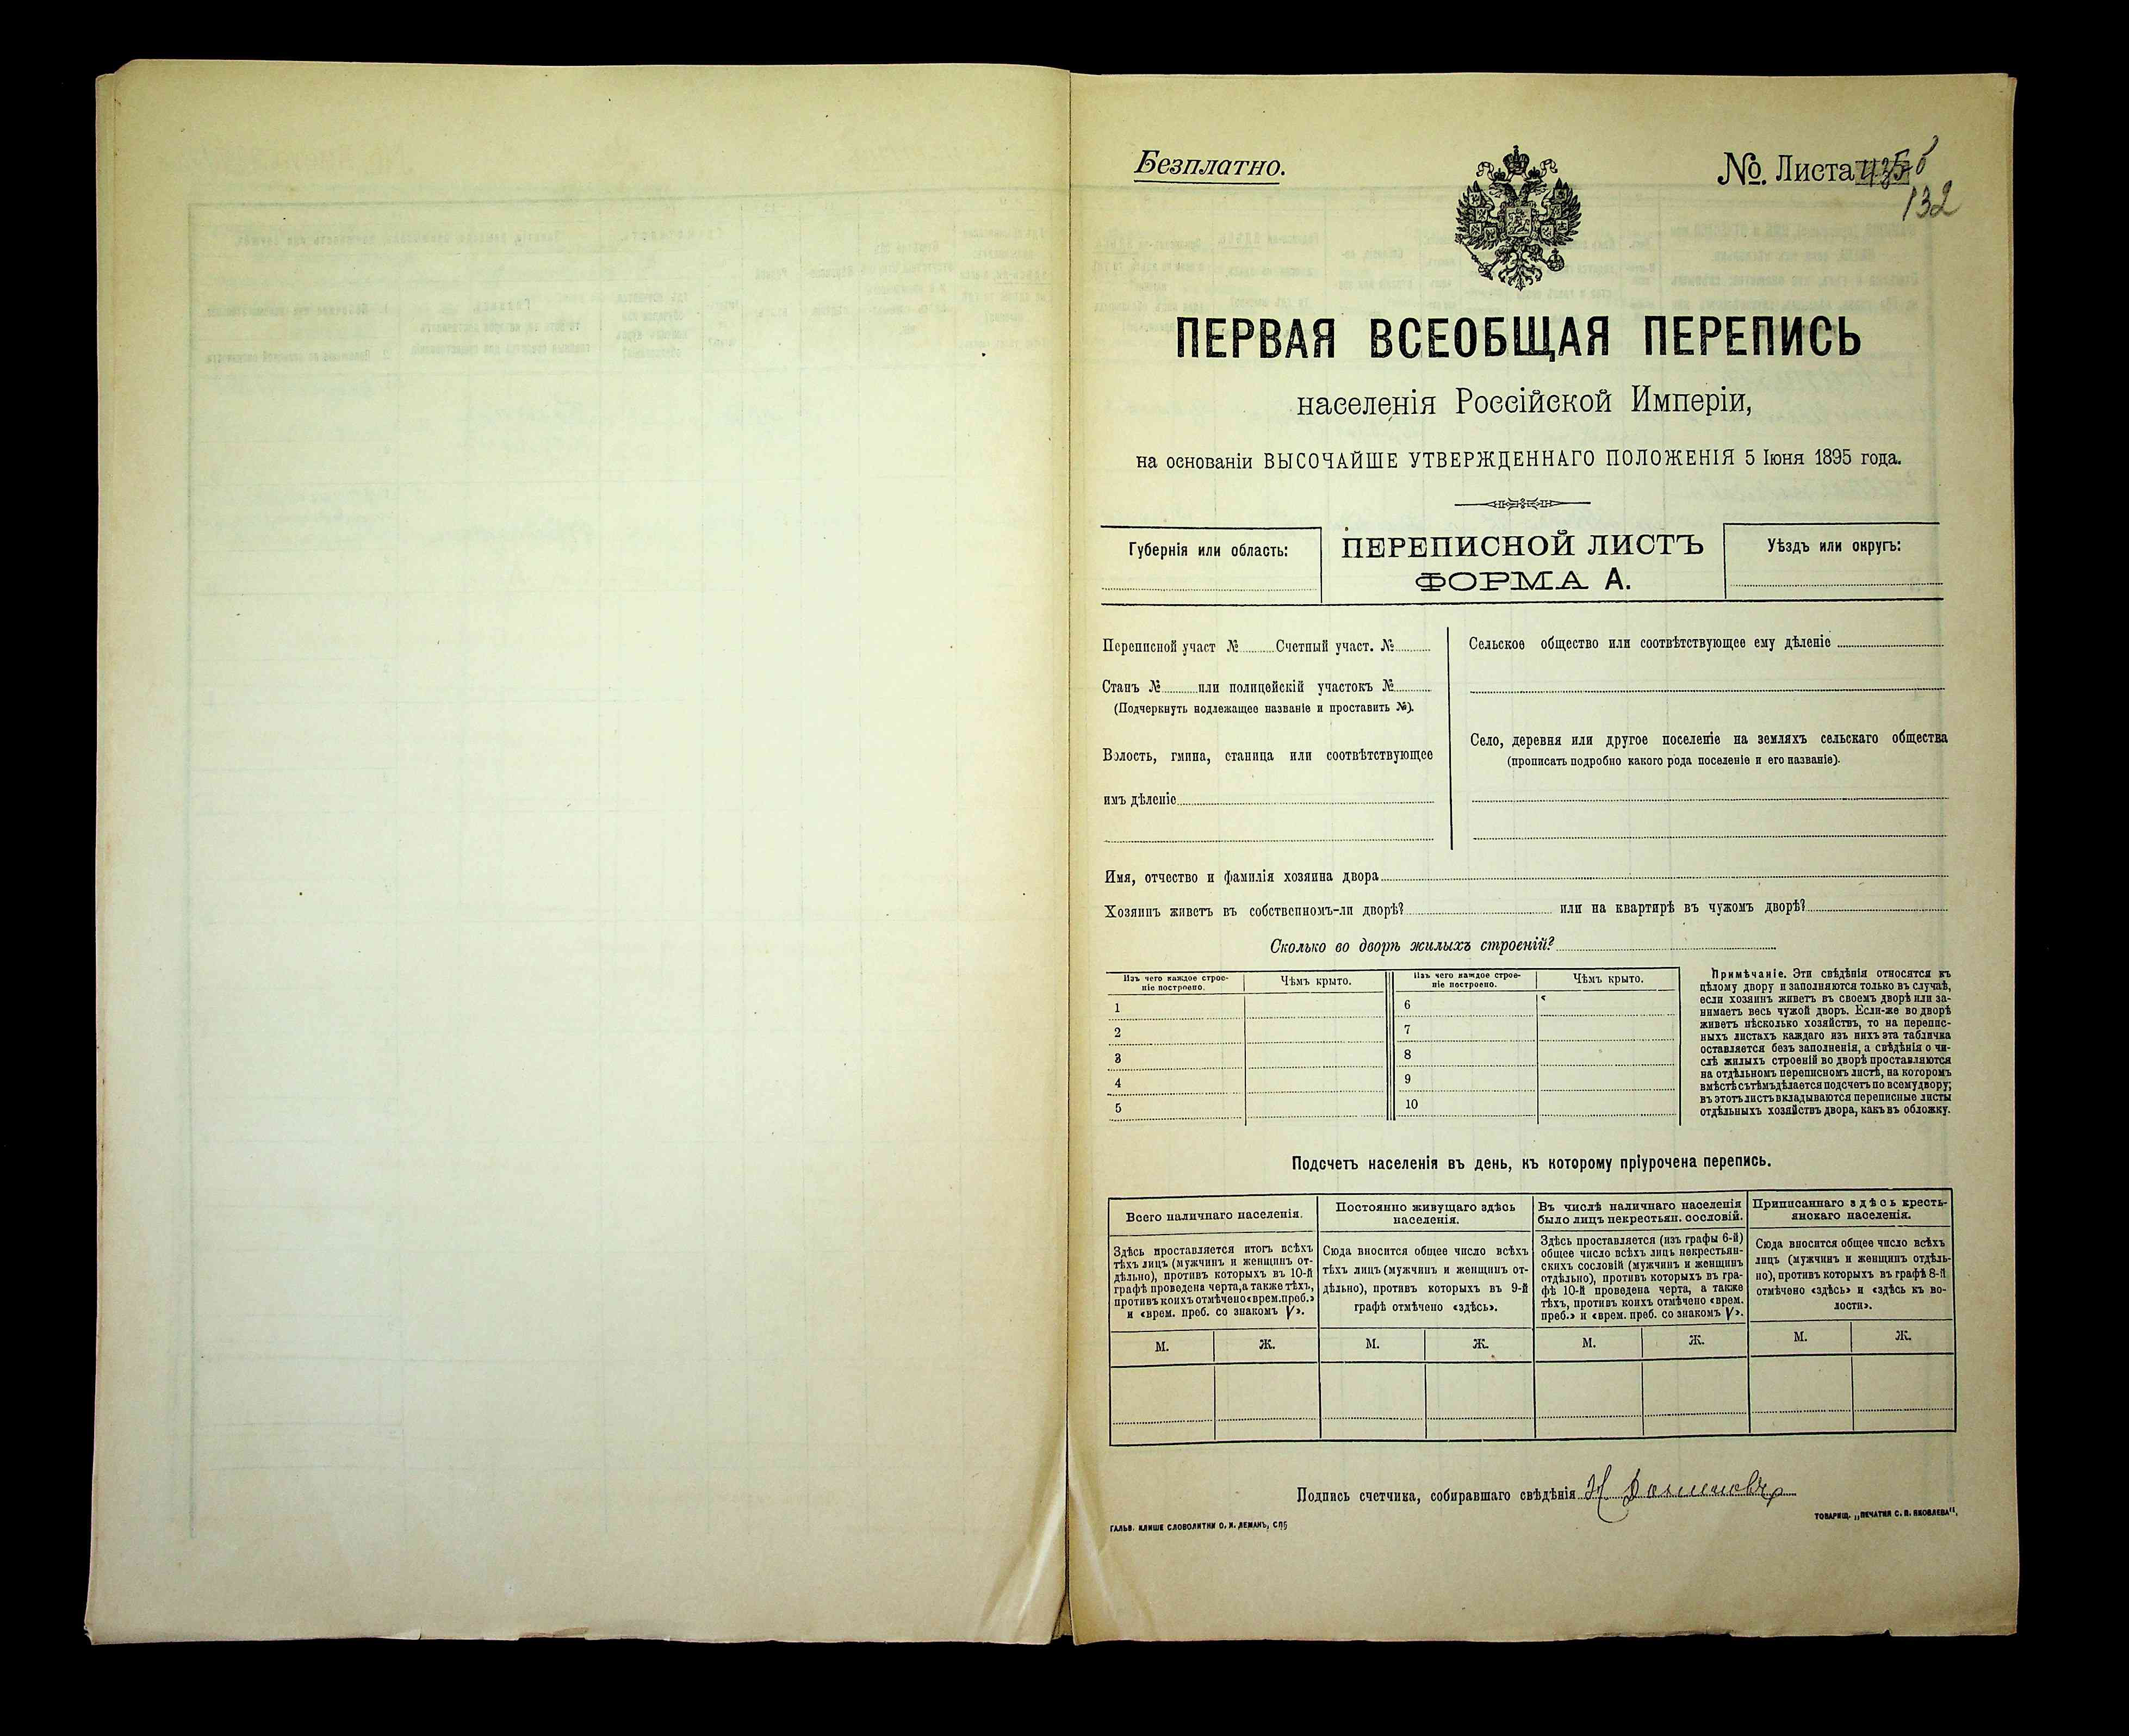 Безплатно.
№. Листа 435 б
132
ПЕРВАЯ ВСЕОБЩАЯ ПЕРЕПИСЬ
населенія Россійской Имперіи,
на основаніи ВЫСОЧАЙШЕ УТВЕРЖДЕННАГО ПОЛОЖЕНІЯ 5 Іюня 1895 года.
Губернія или область:
ПЕРЕПИСНОЙ ЛИСТЪ
ФОРМА А.
Уѣздъ или округъ:
Переписной участ № Счетный участ. №
Станъ № или полицейскій участокъ №
(Подчеркнуть подлежащее названіе и проставить №).
Волость, гмина, станица или соотвѣтствующее
имъ дѣленіе
Сельское общество или соотвѣтствующее ему дѣленіе
Село, деревня или другое поселеніе на земляхъ сельскаго общества
(прописать подробно какого рода поселеніе и его названіе).
Имя, отчество и фамилія хозяина двора
Хозяинъ живетъ въ собственномъ-ли дворѣ? или на квартирѣ въ чужомъ дворѣ?
Сколько во дворѣ жилыхъ строеній?
Изъ чего каждое строе-
ніе построено.
Чѣмъ крыто.
1
2
3
4
5
Изъ чего каждое строе-
ніе построено.
Чѣмъ крыто.
6
7
8
9
10
Примѣчаніе. Эти свѣдѣнія относятся къ
цѣлому двору и заполняются только въ случаѣ,
если хозяинъ живетъ въ своемъ дворѣ или за-
нимаетъ весь чужой дворъ. Если-же во дворѣ
живетъ нѣсколько хозяйствъ, то на перепис-
ныхъ листахъ каждаго изъ нихъ эта табличка
оставляется безъ заполненія, а свѣдѣнія о чи-
слѣ жилыхъ строеній во дворѣ проставляются
на отдѣльномъ переписномъ листѣ, на которомъ
вмѣстѣ съ тѣмъ дѣлается подсчетъ по всему двору;
въ этотъ листъ вкладываются переписные листы
отдѣльныхъ хозяйствъ двора, какъ въ обложку.
Подсчетъ населенія въ день, къ которому пріурочена перепись.
Всего наличнаго населенія.
Здѣсь проставляется итогъ всѣхъ
тѣхъ лицъ (мужчинъ и женщинъ от-
дѣльно), противъ которыхъ въ 10-й
графѣ проведена черта, а также тѣхъ,
противъ коихъ отмѣчено «врем. преб.»
и «врем. преб. со знакомъ V».
М. Ж.
Постоянно живущаго здѣсь
населенія.
Сюда вносится общее число всѣхъ
тѣхъ лицъ (мужчинъ и женщинъ от-
дѣльно), противъ которыхъ въ 9-й
графѣ отмѣчено «здѣсь».
М. Ж.
Въ числѣ наличнаго населенія
было лицъ некрестьян. сословій.
Здѣсь проставляется (изъ графы 6-й)
общее число всѣхъ лицъ некрестьян-
скихъ сословій (мужчинъ и женщинъ
отдѣльно), противъ которыхъ въ гра-
фѣ 10-й проведена черта, а также
тѣхъ, противъ коихъ отмѣчено «врем.
преб.» и «врем. преб. со знакомъ V».
М. Ж.
Приписаннаго здѣсь кресть-
янскаго населенія.
Сюда вносится общее число всѣхъ
лицъ (мужчинъ и женщинъ отдѣль-
но), противъ которыхъ въ графѣ 8-й
отмѣчено «здѣсь» и «здѣсь къ во-
лости».
М. Ж.
Подпись счетчика, собиравшаго свѣдѣнія
ГАЛЬВ. КЛИШЕ СЛОВОЛИТНИ О. И. ЛЕМАНЪ, СПБ
ТОВАРИЩ. „ПЕЧАТНЯ С. П. ЯКОВЛЕВА".